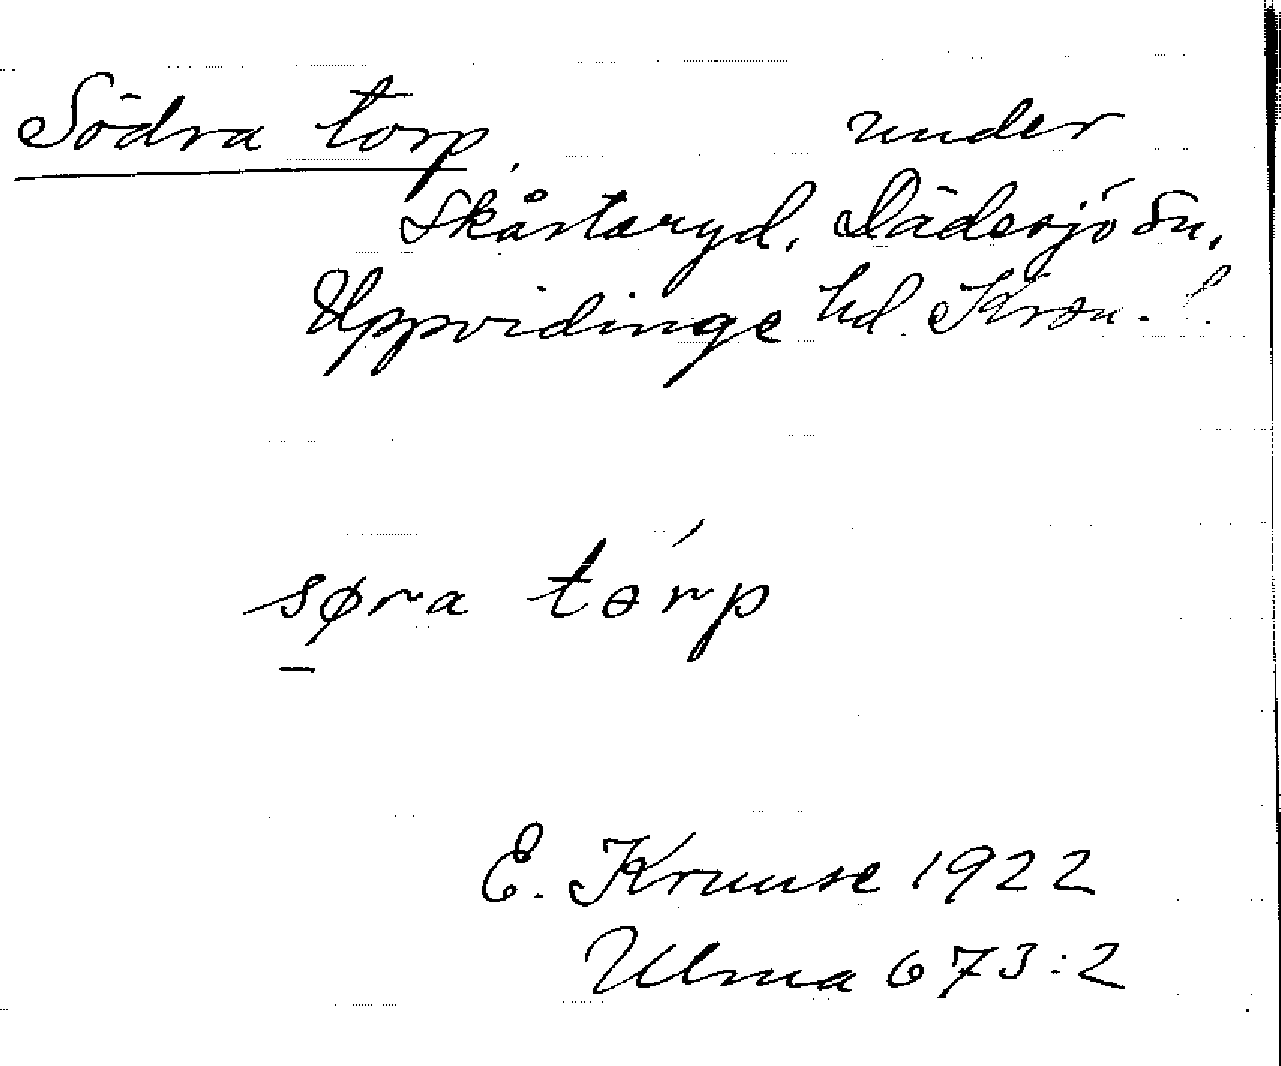 Södra torp, under
Skårtaryd, Dädesjö sn,
Uppvidinge hd. Kron. l.
søra tɵ́rp
E. Kruuse 1922
Ulma 673:2